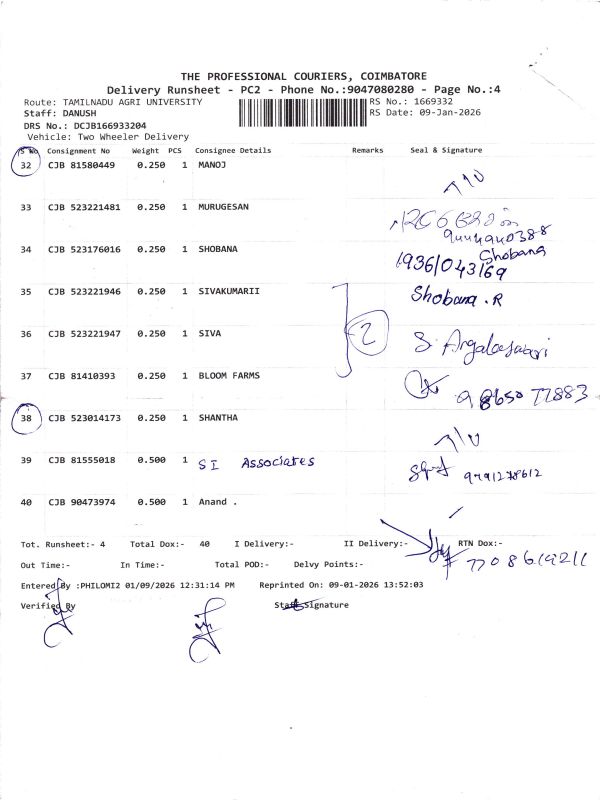 THE PROFESSIONAL COURIERS, COIMBATORE
Delivery Runsheet - PC2 - Phone No.:9047080280 - Page No.:4
Route: TAMILNADU AGRI UNIVERSITY RS No.: 1669332
Staff: DANUSH RS Date: 09-Jan-2026
DRS No.: DCJB166933204
Vehicle: Two Wheeler Delivery
S No Consignment No Weight PCS Consignee Details Remarks Seal & Signature
32 CJB 81580449 0.250 1 MANOJ
33 CJB 523221481 0.250 1 MURUGESAN
9444940388
34 CJB 523176016 0.250 1 SHOBANA Shobana
1936/043/69
35 CJB 523221946 0.250 1 SIVAKUMARII Shobana.R
2
36 CJB 523221947 0.250 1 SIVA S.
37 CJB 81410393 0.250 1 BLOOM FARMS 98650 77883
38 CJB 523014173 0.250 1 SHANTHA
39 CJB 81555018 0.500 1 SI Associates 9791278612
40 CJB 90473974 0.500 1 Anand .
Tot. Runsheet:- 4 Total Dox:- 40 I Delivery:- II Delivery:- RTN Dox:-
7708619211
Out Time:- In Time:- Total POD:- Delvy Points:-
Entered By :PHILOMI2 01/09/2026 12:31:14 PM Reprinted On: 09-01-2026 13:52:03
Verified By Staff Signature